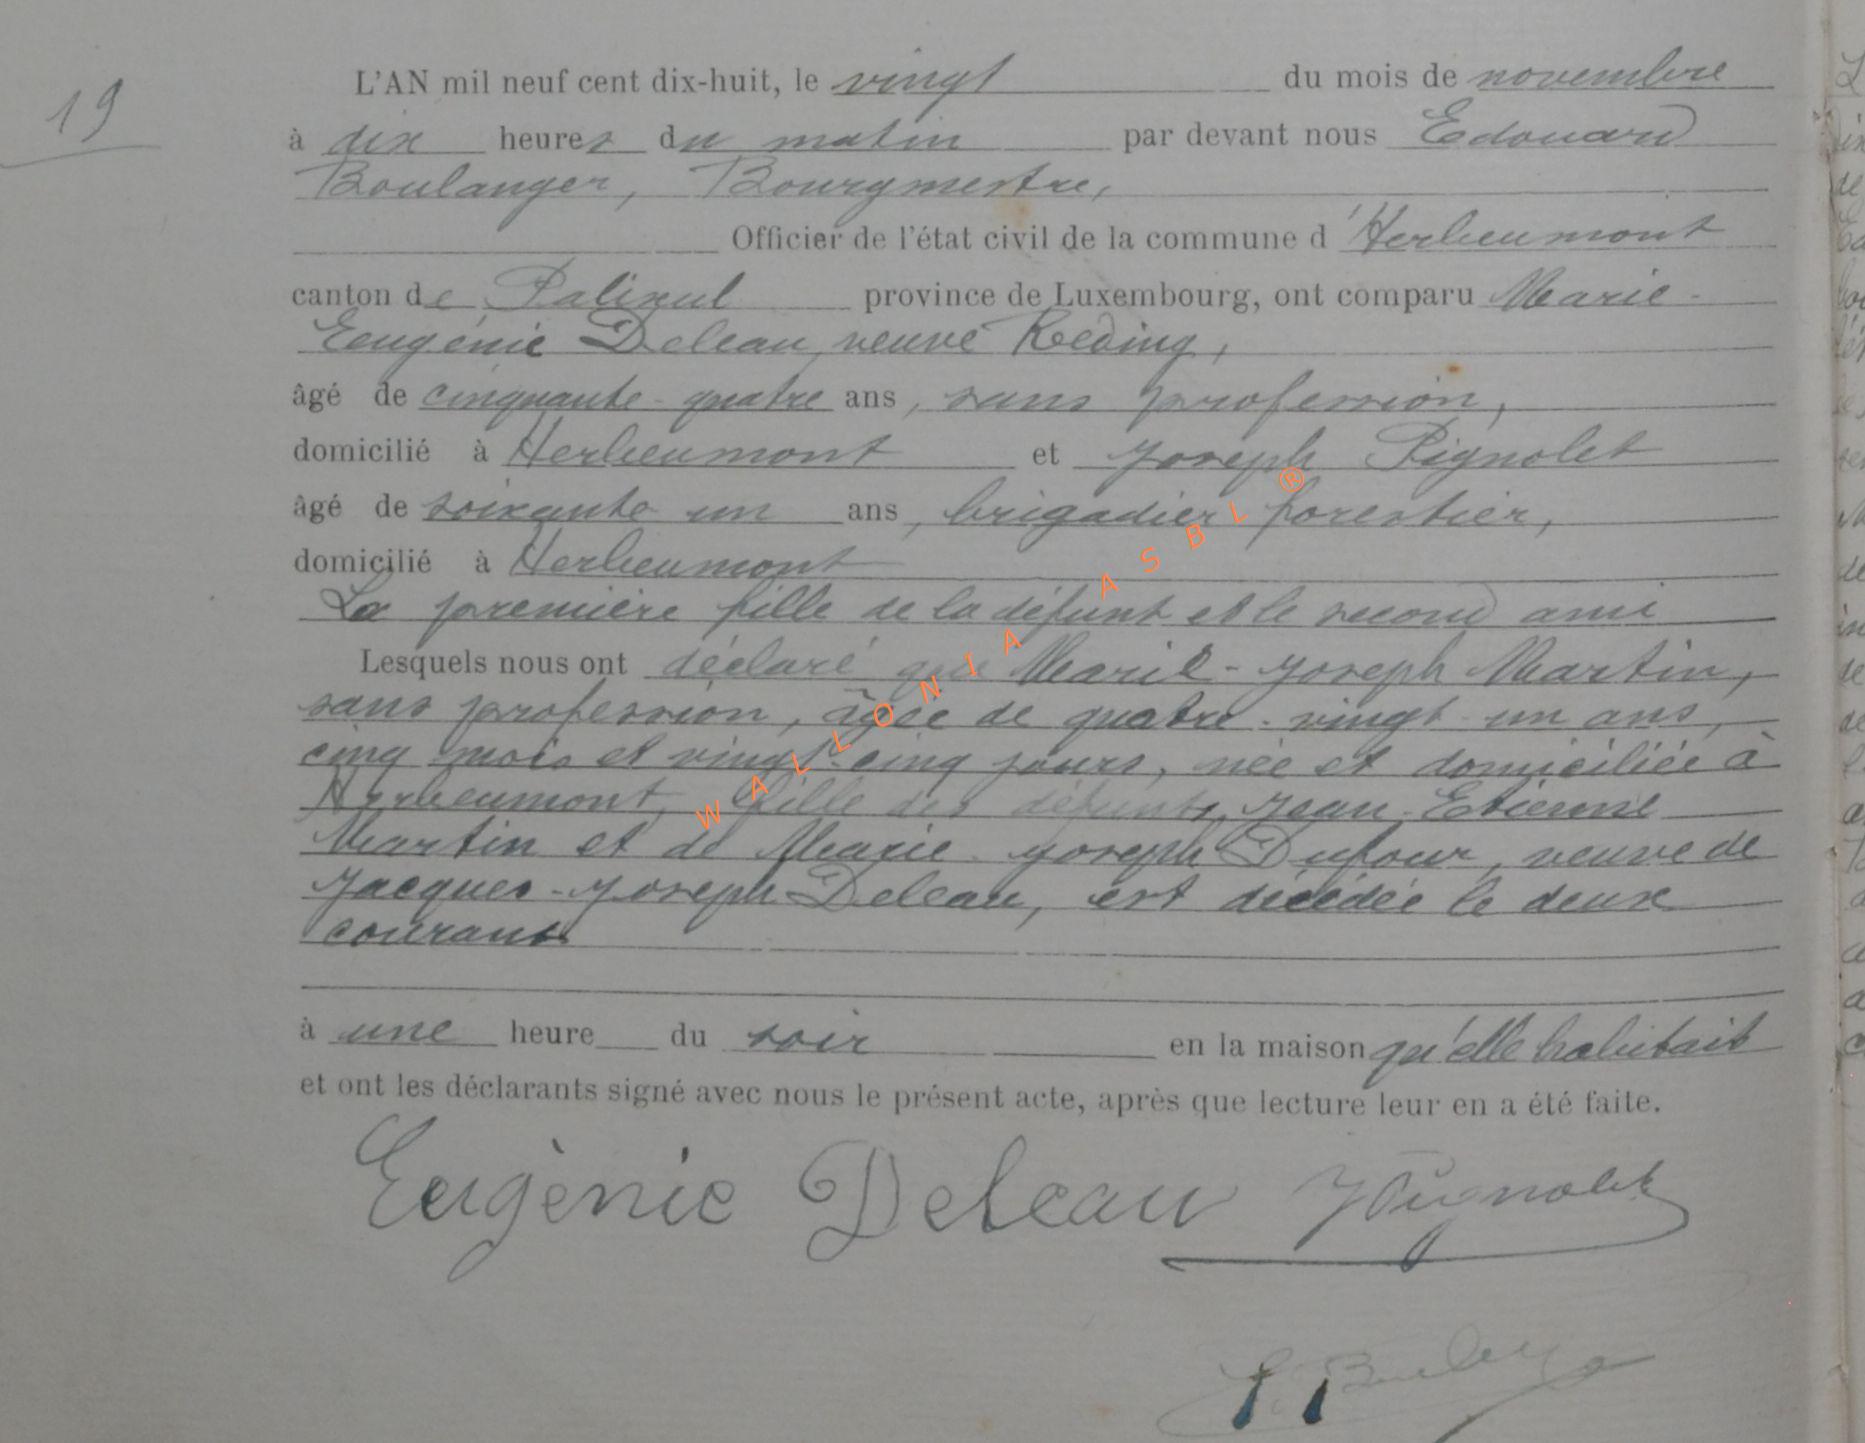 19
L'AN mil neuf cent dix-huit, le vingt du mois de novembre
à dix heures du matin par devant nous Edouard
Boulanger, Bourgmestre,
Officier de l'état civil de la commune d'Herbeumont
canton de Paliseul province de Luxembourg, ont comparu Marie-
Eugénie Deleau, veuve Reding,
âgé de cinquante-quatre ans, sans profession,
domicilié à Herbeumont et Joseph Pignolet
âgé de soixante un ans, brigadier forestier,
domicilié à Herbeumont
La première fille de la défunt et le second ami
Lesquels nous ont déclaré que Marie-Joseph Martin,
sans profession, âgée de quatre-vingt-un ans,
cinq mois et vingt-cinq jours, née et domiciliée à
Herbeumont, fille des défunts Jean-Etienne
Martin et de Marie-Joseph Dufour, veuve de
Jacques-Joseph Deleau, est décédée le deux
courant
à une heure du soir en la maison qu'elle habitait
et ont les déclarants signé avec nous le présent acte, après que lecture leur en a été faite.
Eugènie Deleau JPignolet
WALLONIA ASBL ®